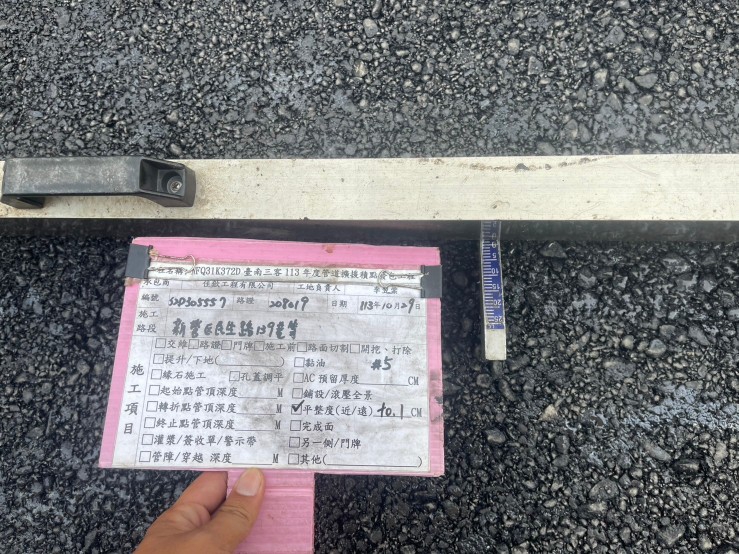 工程名稱:AFQ31K372D 臺南三客 113 年度管道擴援積點發包工程
承包商 任歆工程有限公司 工地負責人
編號 SDD305557 路證 208019 日期 113年10月29日
施工路段 新營區民生路139號等
施工項目
□交維□路證□門牌□施工前□路面切割□開挖、打除
□提升/下地( □黏油 #5
□緣石施工 □孔蓋調平 □AC 預留厚度 CM
□起始點管頂深度 M □鋪設/滾壓全景
□轉折點管頂深度 M ☑平整度(近/遠) ±0.1 CM
□終止點管頂深度 M □完成面
□灌漿/簽收單/警示帶 □另一側/門牌
□管障/穿越 深度 M □其他( )